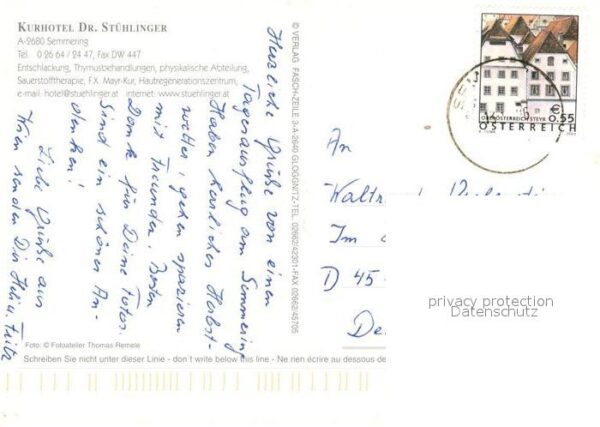 KURHOTEL DR. STÜHLINGER
A-2680 Semmering
Tel. 0 26 64 / 24 47, Fax DW 447
Entschlackung, Thymusbehandlungen, physikalische Abteilung,
Sauerstofftherapie, F.X. Mayr-Kur, Hautregenerationszentrum,
e-mail: hotel@stuehlinger.at internet: www.stuehlinger.at
Herzliche Grüße von einen
Tagesausflug am Semmering
Haben herrliches Herbst-
wetter, gehen spazieren
mit Freunden. Besten
Dank für Deine Fotos.
Sind ein schönes An-
denken!
Liebe Grüße aus
Wien senden Dir Heli u. Fritz
Foto: © Fotoatelier Thomas Remele
Schreiben Sie nicht unter dieser Linie - don't write below this line - Ne rien écrire au dessous de
© VERLAG FASCH-ZEILE 3-A-2640 GLOGGNITZ-TEL. 02662/42301-FAX 02662/45705
€
0.55
OBERÖSTERREICH STEYR
ÖSTERREICH
An
Im
D 45
De
privacy protection
Datenschutz